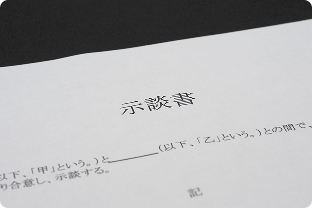 示談書
（以下、「甲」という。）と＿＿＿＿＿（以下、「乙」という。）との間で、
り合意し、示談する。
記